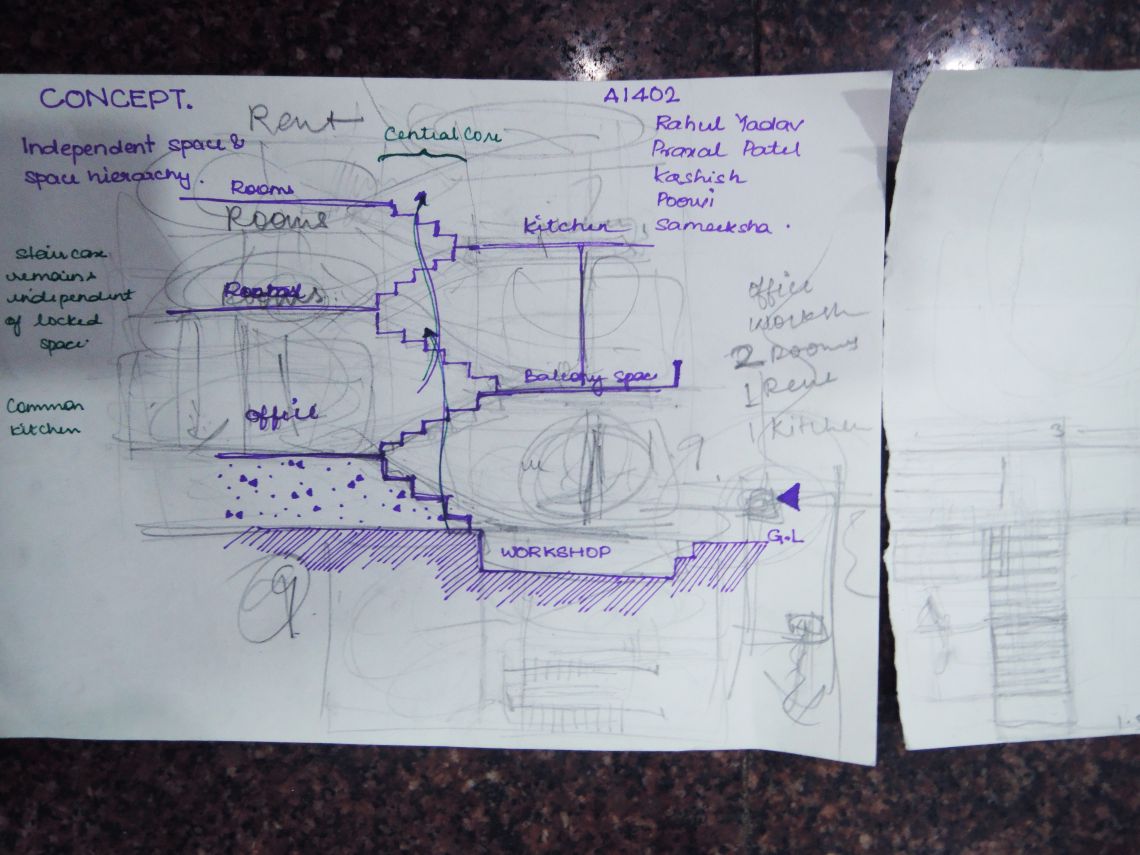 CONCEPT.
Rent
Independent space &
space hierarchy.
Central Core
A1402
Rahul Yadav
Pranal Patel
Kashish
Poorvi
Sameeksha.
Rooms
Rooms
Kitchen
Staircase
remains
independent
of locked
space.
Rooms
office
worksh
2 Rooms
1 Rent
1 Kitchen
Balcony space
Common
kitchen
office
G.L
WORKSHOP